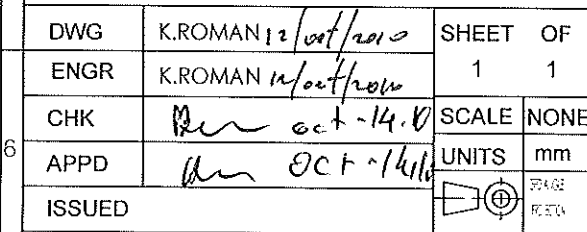 DWG K.ROMAN 12/oct/2010 SHEET OF
ENGR K.ROMAN 12/oct/2010 1 1
CHK oct-14.10 SCALE NONE
6 APPD OCT-14/10 UNITS mm
ISSUED